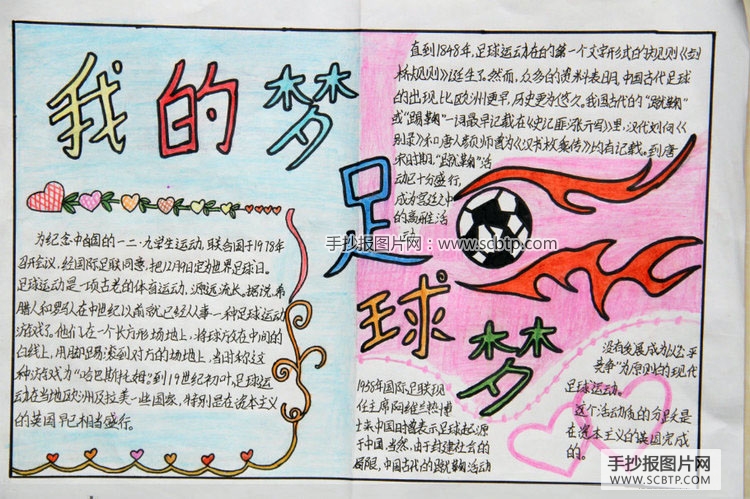 我的梦
足球梦
为纪念中国的一二·九学生运动,联合国于1978年
召开会议,经国际足联同意,把12月9日定为世界足球日。
足球运动是一项古老的体育运动,源远流长。据说,希
腊人和罗马人在中世纪以前就已经从事一种足球运动
游戏了。他们在一个长方形场地上,将球放在中间的
白线上,用脚踢滚到对方的场地上,当时称这
种游戏为“哈巴斯托姆”。到19世纪初叶,足球运
动在当地欧洲及拉美一些国家,特别是在资本主义
的英国早已相当盛行。
直到1848年,足球运动存在的第一个文字形式的规则《剑
桥规则》诞生了。然而,众多的资料表明,中国古代足球
的出现比欧洲更早,历史更为悠久。我国古代的“蹴鞠”
或“蹋鞠”一词最早记载在《史记》里,汉代刘向《
别录》和唐人颜师古为《汉书枚乘传》均有记载。到唐
宋时期,“蹴鞠”活
动已十分盛行,
成为宫廷之中
的高雅活
动。
1958年国际足联现
任主席阿维兰热博
士来中国时曾表示足球起源
于中国。当然,由于封建社会的
局限,中国古代的蹴鞠活动
没有发展成为以“公平
竞争”为原则的现代
足球运动。
这个活动质的分足是
在资本主义的英国完成
的。
手抄报图片网:www.scbtp.com
手抄报图片网
WWW.SCBTP.COM